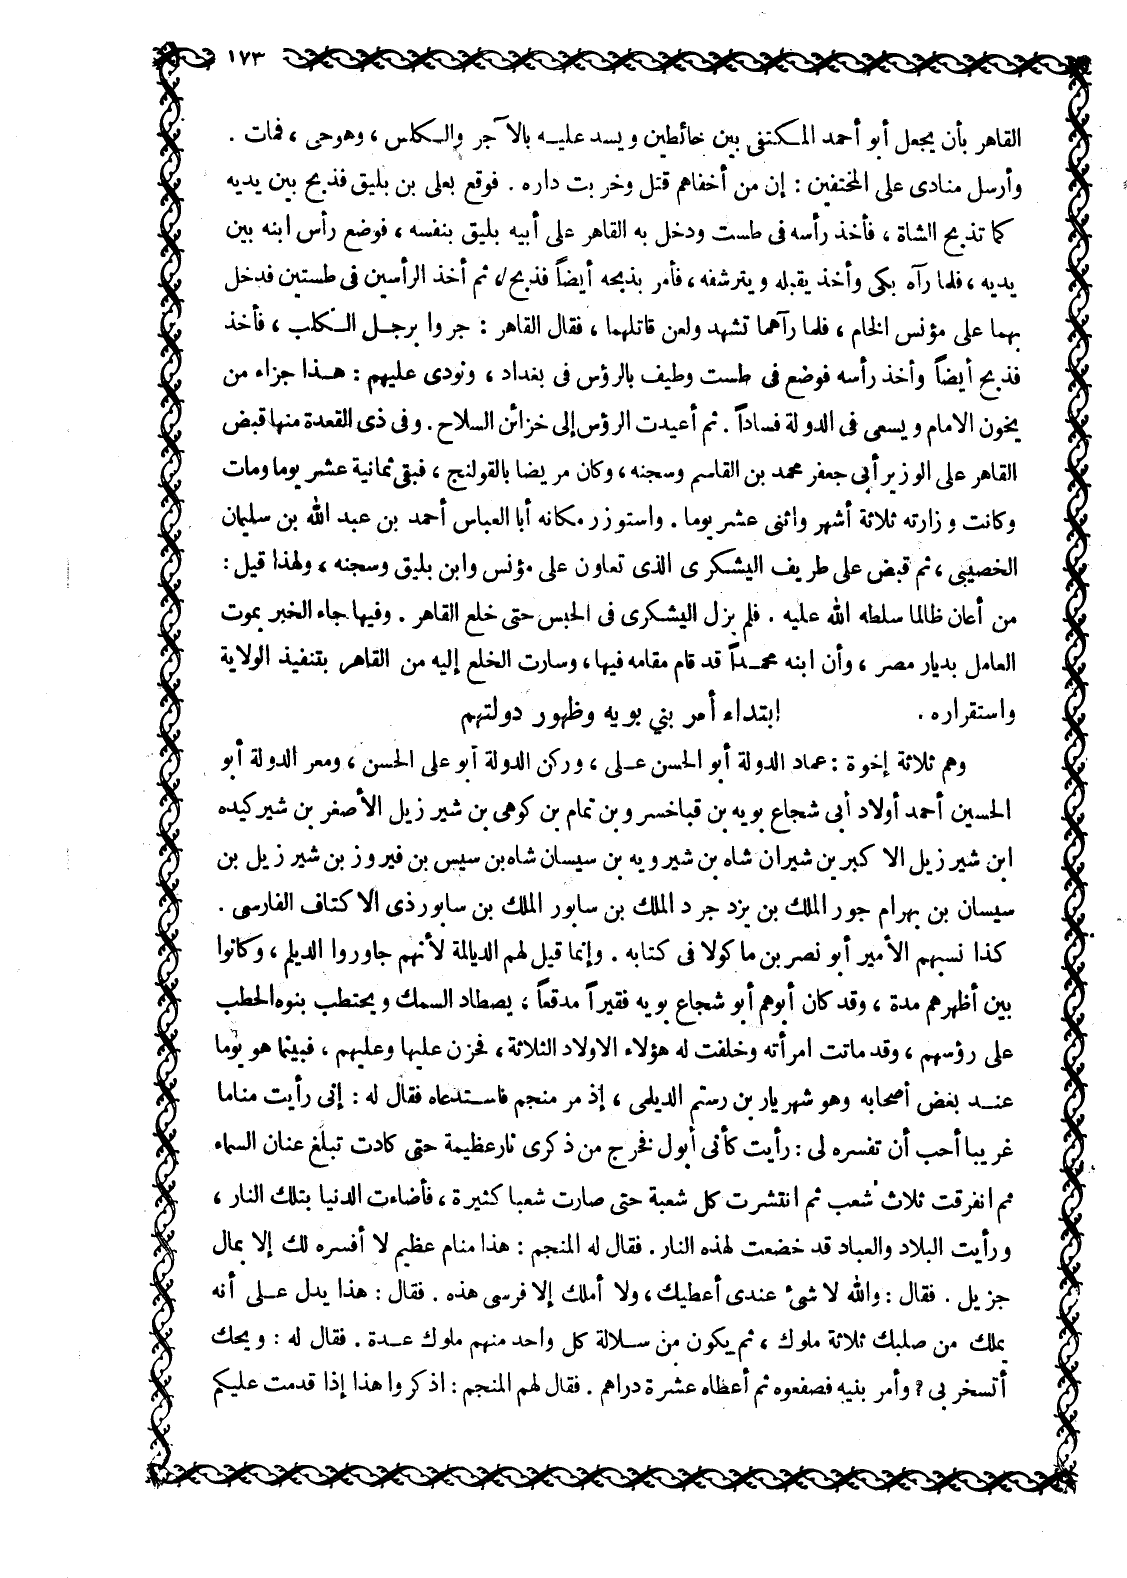 ١٧٣
القاهر بأن يجعل أبو أحمد المكتفى بين حائطين ويسد عليه بالآجر والكلس ، وهو حى ، فمات .
وأرسل منادى على المختفين : إن من أخفاهم قتل وخربت داره . فوقع بعلى بن بليق فذبح بين يديه
كما تذبح الشاة ، فأخذ رأسه فى طست ودخل به القاهر على أبيه بليق بنفسه ، فوضع رأس ابنه بين
يديه ، فلما رآه بكى وأخذ يقبله ويترشفه ، فأمر بذبحه أيضاً فذبح ، ثم أخذ الرأسين فى طستين فدخل
بهما على مؤنس الخام ، فلما رآهما تشهد ولعن قاتلهما ، فقال القاهر : جروا برجل الكلب ، فأخذ
فذبح أيضاً وأخذ رأسه فوضع فى طست وطيف بالرؤس فى بغداد ، ونودى عليهم : هذا جزاء من
يخون الامام ويسعى فى الدولة فساداً . ثم أعيدت الرؤس إلى خزائن السلاح . وفى ذى القعدة منها قبض
القاهر على الوزير أبى جعفر محمد بن القاسم وسجنه ، وكان مريضا بالقولنج ، فبقى ثمانية عشر يوما ومات
وكانت وزارته ثلاثة أشهر واثنى عشر يوما . واستوزر مكانه أبا العباس أحمد بن عبد الله بن سليمان
الخصيبى ، ثم قبض على طريف اليشكرى الذى تعاون على مؤنس وابن بليق وسجنه ، ولهذا قيل :
من أعان ظالما سلطه الله عليه . فلم يزل اليشكرى فى الحبس حتى خلع القاهر . وفيها جاء الخبر بموت
العامل بديار مصر ، وأن ابنه محمداً قد قام مقامه فيها ، وسارت الخلع إليه من القاهر بتنفيذ الولاية
واستقراره . ابتداء أمر بني بويه وظهور دولتهم
وهم ثلاثة إخوة : عماد الدولة أبو الحسن على ، وركن الدولة أبو على الحسن ، ومعز الدولة أبو
الحسين أحمد أولاد أبى شجاع بويه بن قباخسرو بن تمام بن كوهى بن شيرزيل الأصغر بن شيركيده
ابن شيرزيل الاكبر بن شيران شاه بن شيرويه بن سيسان شاه بن سيس بن فيروز بن شيرزيل بن
سيسان بن بهرام جور الملك بن يزدجرد الملك بن سابور الملك بن سابور ذى الاكتاف الفارسى .
كذا نسبهم الأمير أبو نصر بن ماكولا فى كتابه . وإنما قيل لهم الديالمة لأنهم جاوروا الديلم ، وكانوا
بين أظهرهم مدة ، وقد كان أبوهم أبو شجاع بويه فقيراً مدقعاً ، يصطاد السمك ويحتطب بنوه الحطب
على رؤسهم ، وقد ماتت امرأته وخلفت له هؤلاء الاولاد الثلاثة ، فحزن عليها وعليهم ، فبينما هو يوما
عند بعض أصحابه وهو شهريار بن رستم الديلمى ، إذ مر منجم فاستدعاه فقال له : إنى رأيت مناما
غريبا أحب أن تفسره لى : رأيت كأنى أبول فخرج من ذكرى نار عظيمة حتى كادت تبلغ عنان السماء
ثم انفرقت ثلاث شعب ثم انتشرت كل شعبة حتى صارت شعبا كثيرة ، فأضاءت الدنيا بتلك النار ،
ورأيت البلاد والعباد قد خضعت لهذه النار . فقال له المنجم : هذا منام عظيم لا أفسره لك إلا بمال
جزيل . فقال : والله لا شئ عندى أعطيك ، ولا أملك إلا فرسى هذه . فقال : هذا يدل على أنه
يملك من صلبك ثلاثة ملوك ، ثم يكون من سلالة كل واحد منهم ملوك عدة . فقال له : ويحك
أتسخر بى ؟ وأمر بنيه فصفعوه ثم أعطاه عشرة دراهم . فقال لهم المنجم : اذكروا هذا إذا قدمت عليكم